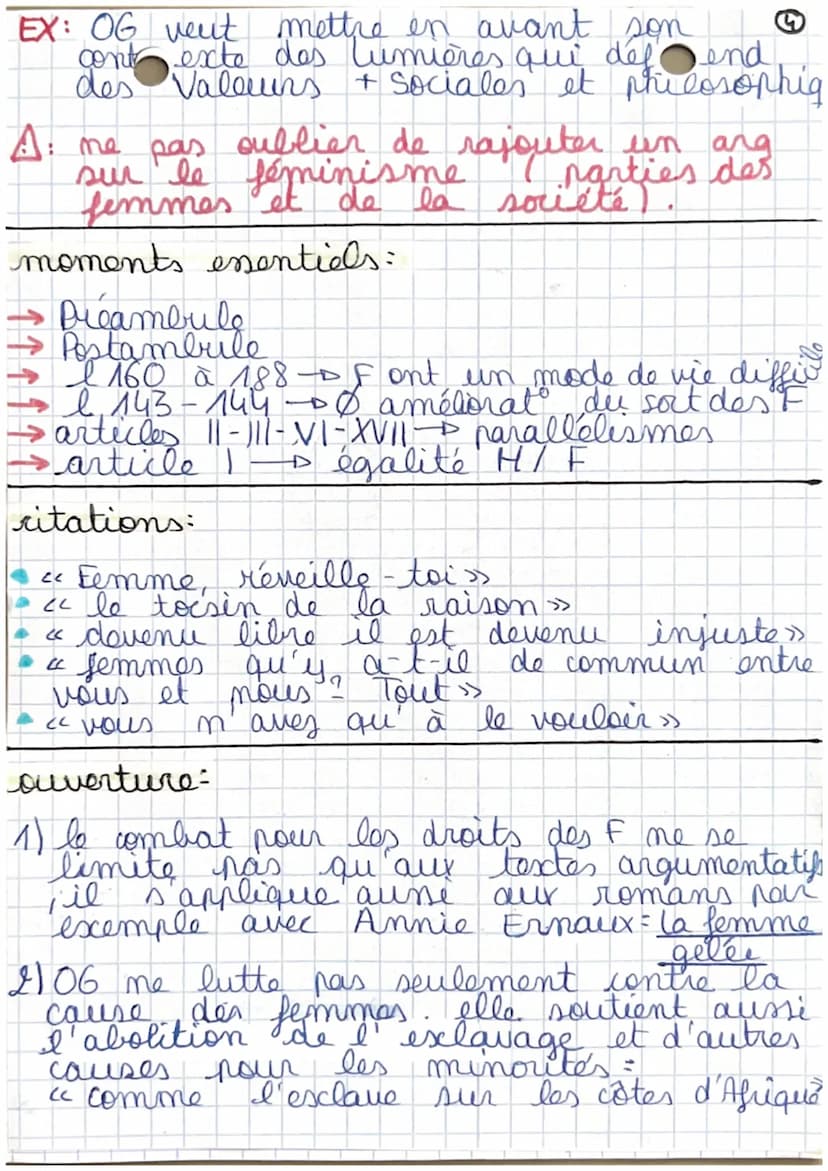 EX: OG veut mettre en avant son ④
contexte des Lumières qui défend
des Valeurs + Sociales et philosophiq
⚠: ne pas oublier de rajouter un arg
sur le féminisme ( parties des
femmes et de la société).
moments essentiels:
→ Préambule
→ Postambule
→ l 160 à 188 → F ont un mode de vie difficile
→ l, 143-144 → Ø améliorat° du sort des F
→ articles II-III-VI-XVII → parallélismes
→ article I → égalité H/F
citations:
• « Femme, réveille-toi »
• « le tocsin de la raison »
• « devenu libre il est devenu injuste »
• « femmes qu'y a-t-il de commun entre
vous et nous? Tout »
• « vous n'avez qu'à le vouloir »
ouverture:
1) le combat pour les droits des F ne se
limite pas qu'aux textes argumentatifs
, il s'applique aussi aux romans par
exemple avec Annie Ernaux= la femme
gelée
2) OG ne lutte pas seulement contre la
cause des femmes. elle soutient aussi
l'abolition de l'esclavage et d'autres
causes pour les minorités =
« comme l'esclave sur les côtes d'Afrique»